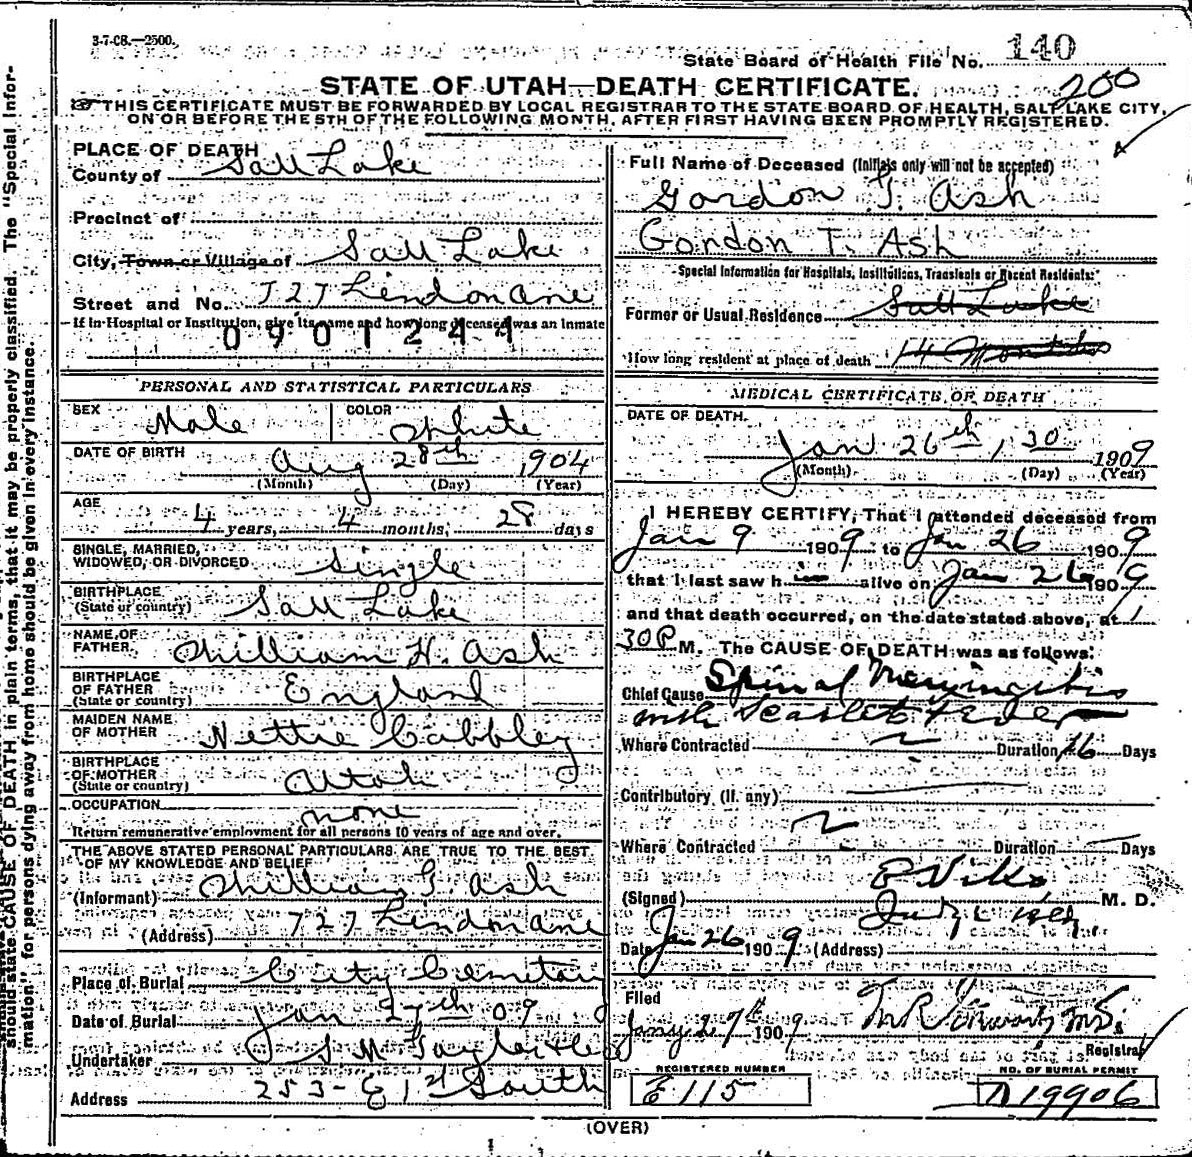 3-7-08.—2500.
State Board of Health File No. 140
STATE OF UTAH—DEATH CERTIFICATE.
200
THIS CERTIFICATE MUST BE FORWARDED BY LOCAL REGISTRAR TO THE STATE BOARD OF HEALTH, SALT LAKE CITY,
ON OR BEFORE THE 5TH OF THE FOLLOWING MONTH, AFTER FIRST HAVING BEEN PROMPTLY REGISTERED.
PLACE OF DEATH
County of Salt Lake
Precinct of
City, Town or Village of Salt Lake
Street and No. 727 Lindon Ave
If in Hospital or Institution, give its name and how long deceased was an inmate
0901244
PERSONAL AND STATISTICAL PARTICULARS
SEX Male COLOR White
DATE OF BIRTH Aug 28th 1904
(Month) (Day) (Year)
AGE 4 years, 4 months, 28 days
SINGLE, MARRIED,
WIDOWED, OR DIVORCED Single
BIRTHPLACE
(State or country) Salt Lake
NAME OF
FATHER William H. Ash
BIRTHPLACE
OF FATHER
(State or country) England
MAIDEN NAME
OF MOTHER Nettie Cabbley
BIRTHPLACE
OF MOTHER
(State or country) Utah
OCCUPATION none
Return remunerative employment for all persons 10 years of age and over.
THE ABOVE STATED PERSONAL PARTICULARS ARE TRUE TO THE BEST
OF MY KNOWLEDGE AND BELIEF
(Informant) William G. Ash
(Address) 727 Lindon Ave
Place of Burial City Cemetary
Date of Burial Jan 27th 09
Undertaker S M Taylor
Address 253 - E 1st South
Full Name of Deceased (Initials only will not be accepted)
Gordon T. Ash
Gordon T. Ash
Special Information for Hospitals, Institutions, Transients or Recent Residents:
Former or Usual Residence Salt Lake
How long resident at place of death 14 Months
MEDICAL CERTIFICATE OF DEATH
DATE OF DEATH.
Jan 26th, 1 30 1909
(Month) (Day) (Year)
I HEREBY CERTIFY, That I attended deceased from
Jan 9 1909 to Jan 26 1909
that I last saw him alive on Jan 26 1909
and that death occurred, on the date stated above, at 1
30 P M. The CAUSE OF DEATH was as follows:
Chief Cause Spinal Meningitis
with Scarlet Fever
Where Contracted Duration 16 Days
Contributory (if any)
Where Contracted Duration Days
(Signed) M. D.
Date Jan 26 1909 (Address)
Filed
Jany 27th 1909
Registrar
REGISTERED NUMBER
E 115
NO. OF BURIAL PERMIT
A19906
(OVER)
should state CAUSE OF DEATH in plain terms, that it may be properly classified. The "Special Infor-
mation" for persons dying away from home should be given in every instance.